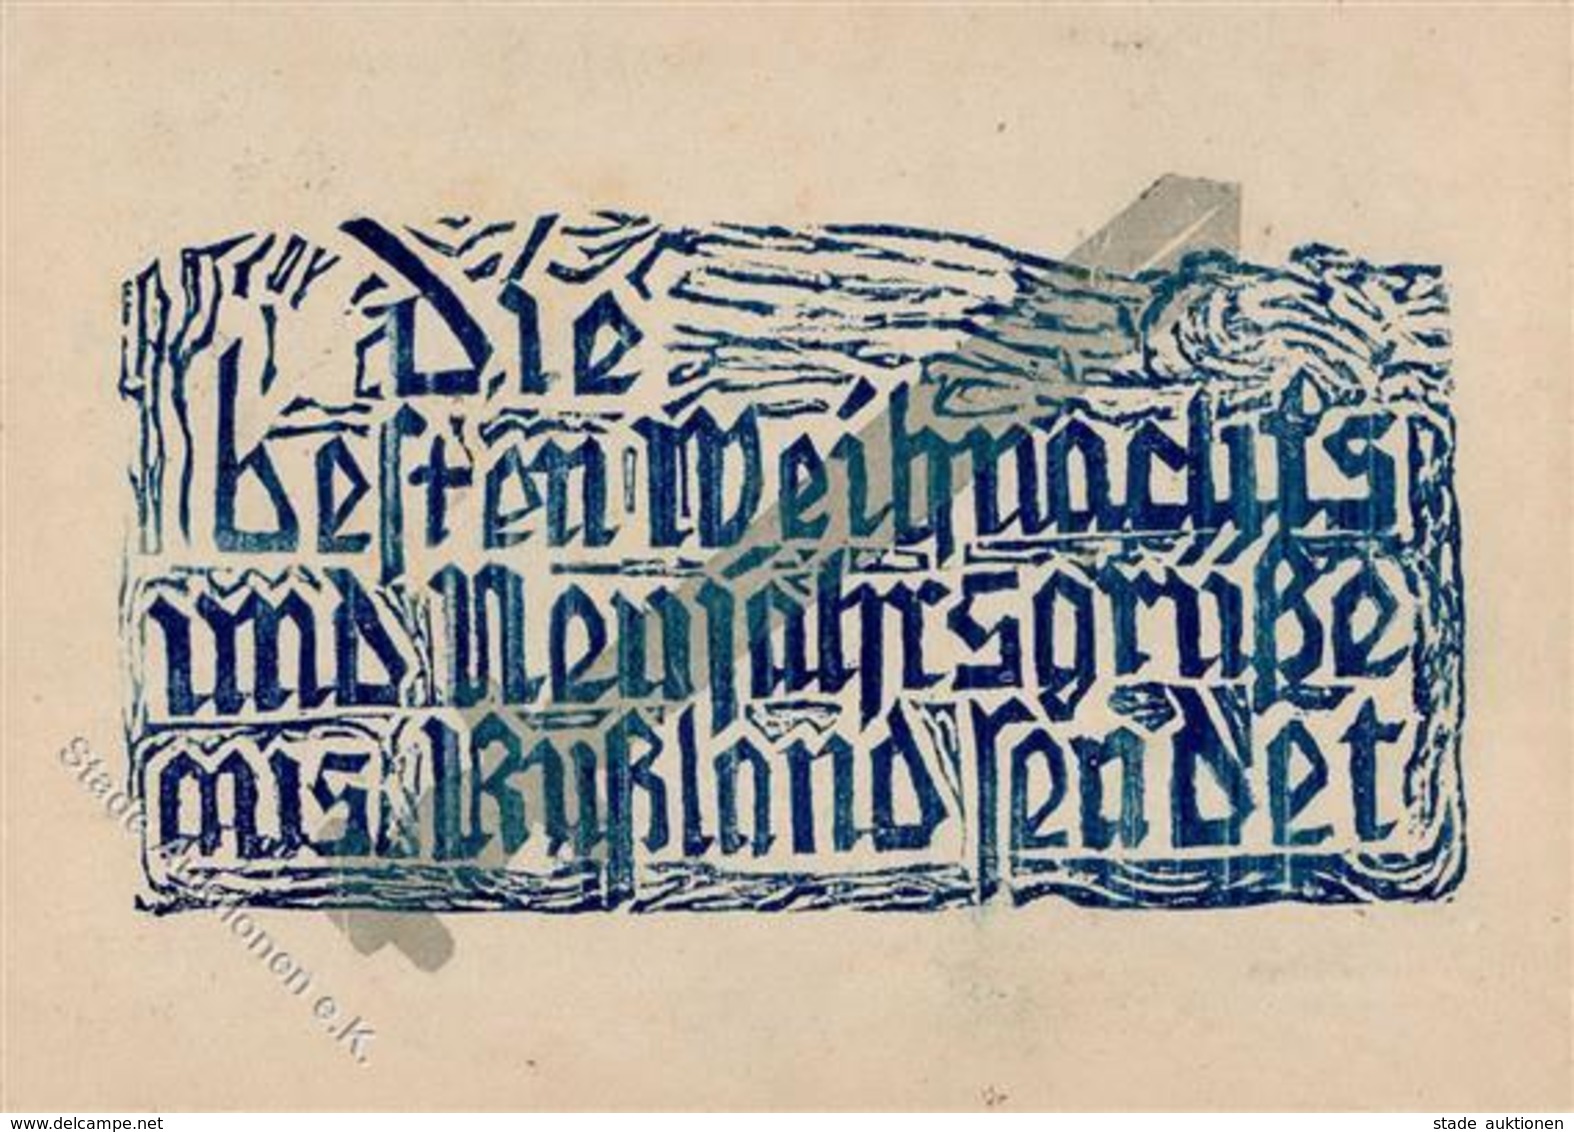 Die
besten Weihnachts
und Neujahrsgrüße
aus Rußland sendet
stade auktionen e.K.
www.delcampe.net
stade auktionen